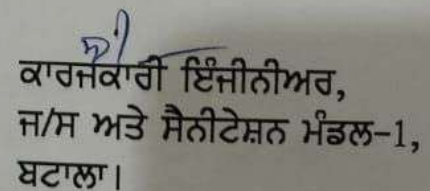 ਕਾਰਜਕਾਰੀ ਇੰਜੀਨੀਅਰ,
ਜ/ਸ ਅਤੇ ਸੈਨੀਟੇਸ਼ਨ ਮੰਡਲ-1,
ਬਟਾਲਾ।